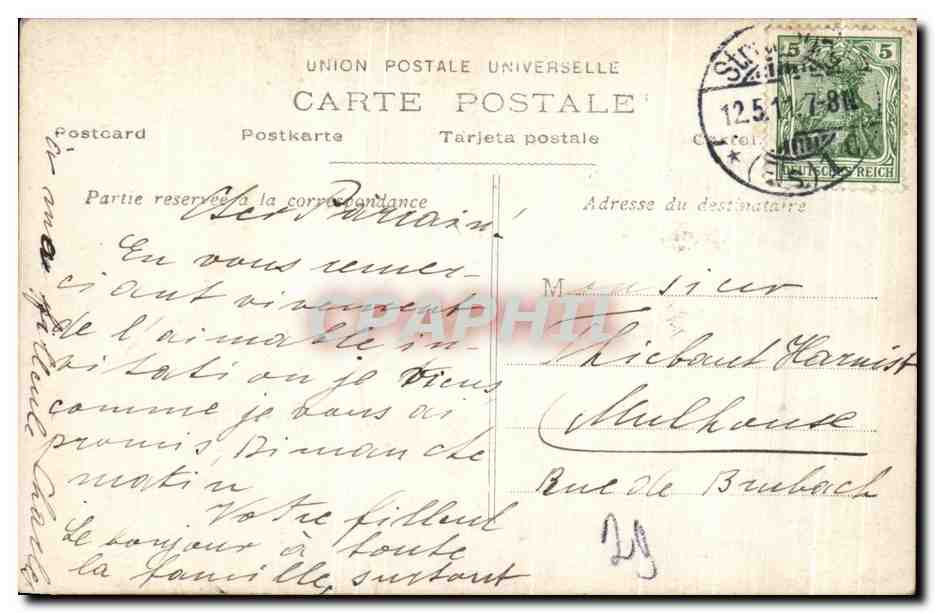 UNION POSTALE UNIVERSELLE
CARTE POSTALE
Postcard Postkarte Tarjeta postale
Partie reservée à la correspondance
Adresse du destinataire
5 5
DEUTSCHES REICH
12.5.1 7-8N
(Els.) 1
Cher Parrain!
En vous remer-
ciant vivement
de l'aimable in-
vitation je viens
comme je vous ai
promis, Dimanche
matin
Votre filleul
Le bonjour à toute
la famille, surtout
à ma filleule
Monsieur
Thiebaut Harnist
Mulhouse
Rue de Brubach
29
CPAPHIL